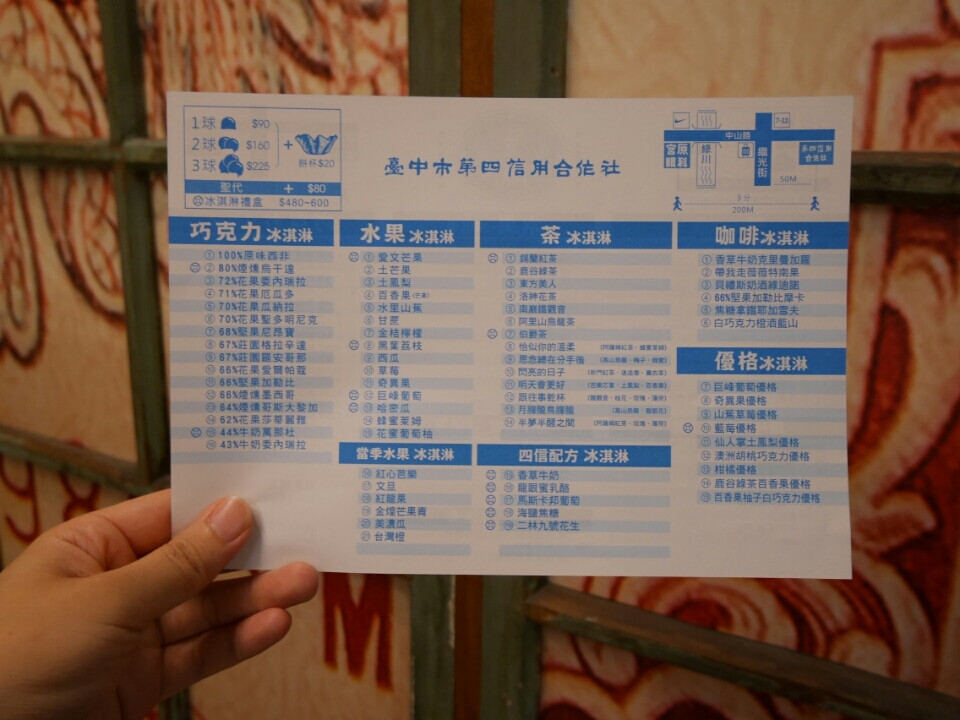 1球 $90
2球 $160
3球 $225
+ 餅杯$20
聖代 + $80
冰淇淋禮盒 $480~600
臺中市第四信用合作社
7-11
中山路
宮原眼科
綠川
繼光街
第四信用合作社
50M
3分
200M
巧克力 冰淇淋
① 100%原味西非
② 80%煙燻烏干達
③ 72%花果委內瑞拉
④ 71%花果厄瓜多
⑤ 70%花果瓜納拉
⑥ 70%花果聖多明尼克
⑦ 68%堅果尼昂寶
⑧ 67%莊園格拉辛達
⑨ 67%莊園羅安哥那
⑩ 66%花果愛爾帕蔻
⑪ 66%堅果加勒比
⑫ 66%煙燻墨西哥
⑬ 64%煙燻哥斯大黎加
⑭ 62%花果莎蒂麗雅
⑮ 44%牛奶萬那杜
⑯ 43%牛奶委內瑞拉
水果 冰淇淋
① 愛文芒果
② 土芒果
③ 土鳳梨
④ 百香果
⑤ 水里山蕉
⑥ 甘蔗
⑦ 金桔檸檬
⑧ 黑葉荔枝
⑨ 西瓜
⑩ 草莓
⑪ 奇異果
⑫ 巨峰葡萄
⑬ 哈密瓜
⑭ 蜂蜜萊姆
⑮ 花蜜葡萄柚
當季水果 冰淇淋
⑯ 紅心芭樂
⑰ 文旦
⑱ 紅龍果
⑲ 金煌芒果青
⑳ 美濃瓜
㉑ 台灣橙
茶 冰淇淋
① 錫蘭紅茶
② 鹿谷綠茶
③ 東方美人
④ 洛神花茶
⑤ 南巖鐵觀音
⑥ 阿里山烏龍茶
⑦ 伯爵茶
⑧ 恰似你的溫柔
⑨ 思念總在分手後
⑩ 閃亮的日子
⑪ 明天會更好
⑫ 跟往事乾杯
⑬ 月朦朧鳥朦朧
⑭ 半夢半醒之間
四信配方 冰淇淋
⑮ 香草牛奶
⑯ 龍眼蜜乳酪
⑰ 馬斯卡邦葡萄
⑱ 海鹽焦糖
⑲ 二林九號花生
咖啡 冰淇淋
① 香草牛奶克里曼加羅
② 帶我走薇薇特南果
③ 貝禮斯奶酒綠迪諾
④ 66%堅果加勒比摩卡
⑤ 焦糖拿鐵耶加雪夫
⑥ 白巧克力橙酒藍山
優格 冰淇淋
⑦ 巨峰葡萄優格
⑧ 奇異果優格
⑨ 山蕉草莓優格
⑩ 藍莓優格
⑪ 仙人掌土鳳梨優格
⑫ 澳洲胡桃巧克力優格
⑬ 柑橘優格
⑭ 鹿谷綠茶百香果優格
⑮ 百香果柚子白巧克力優格